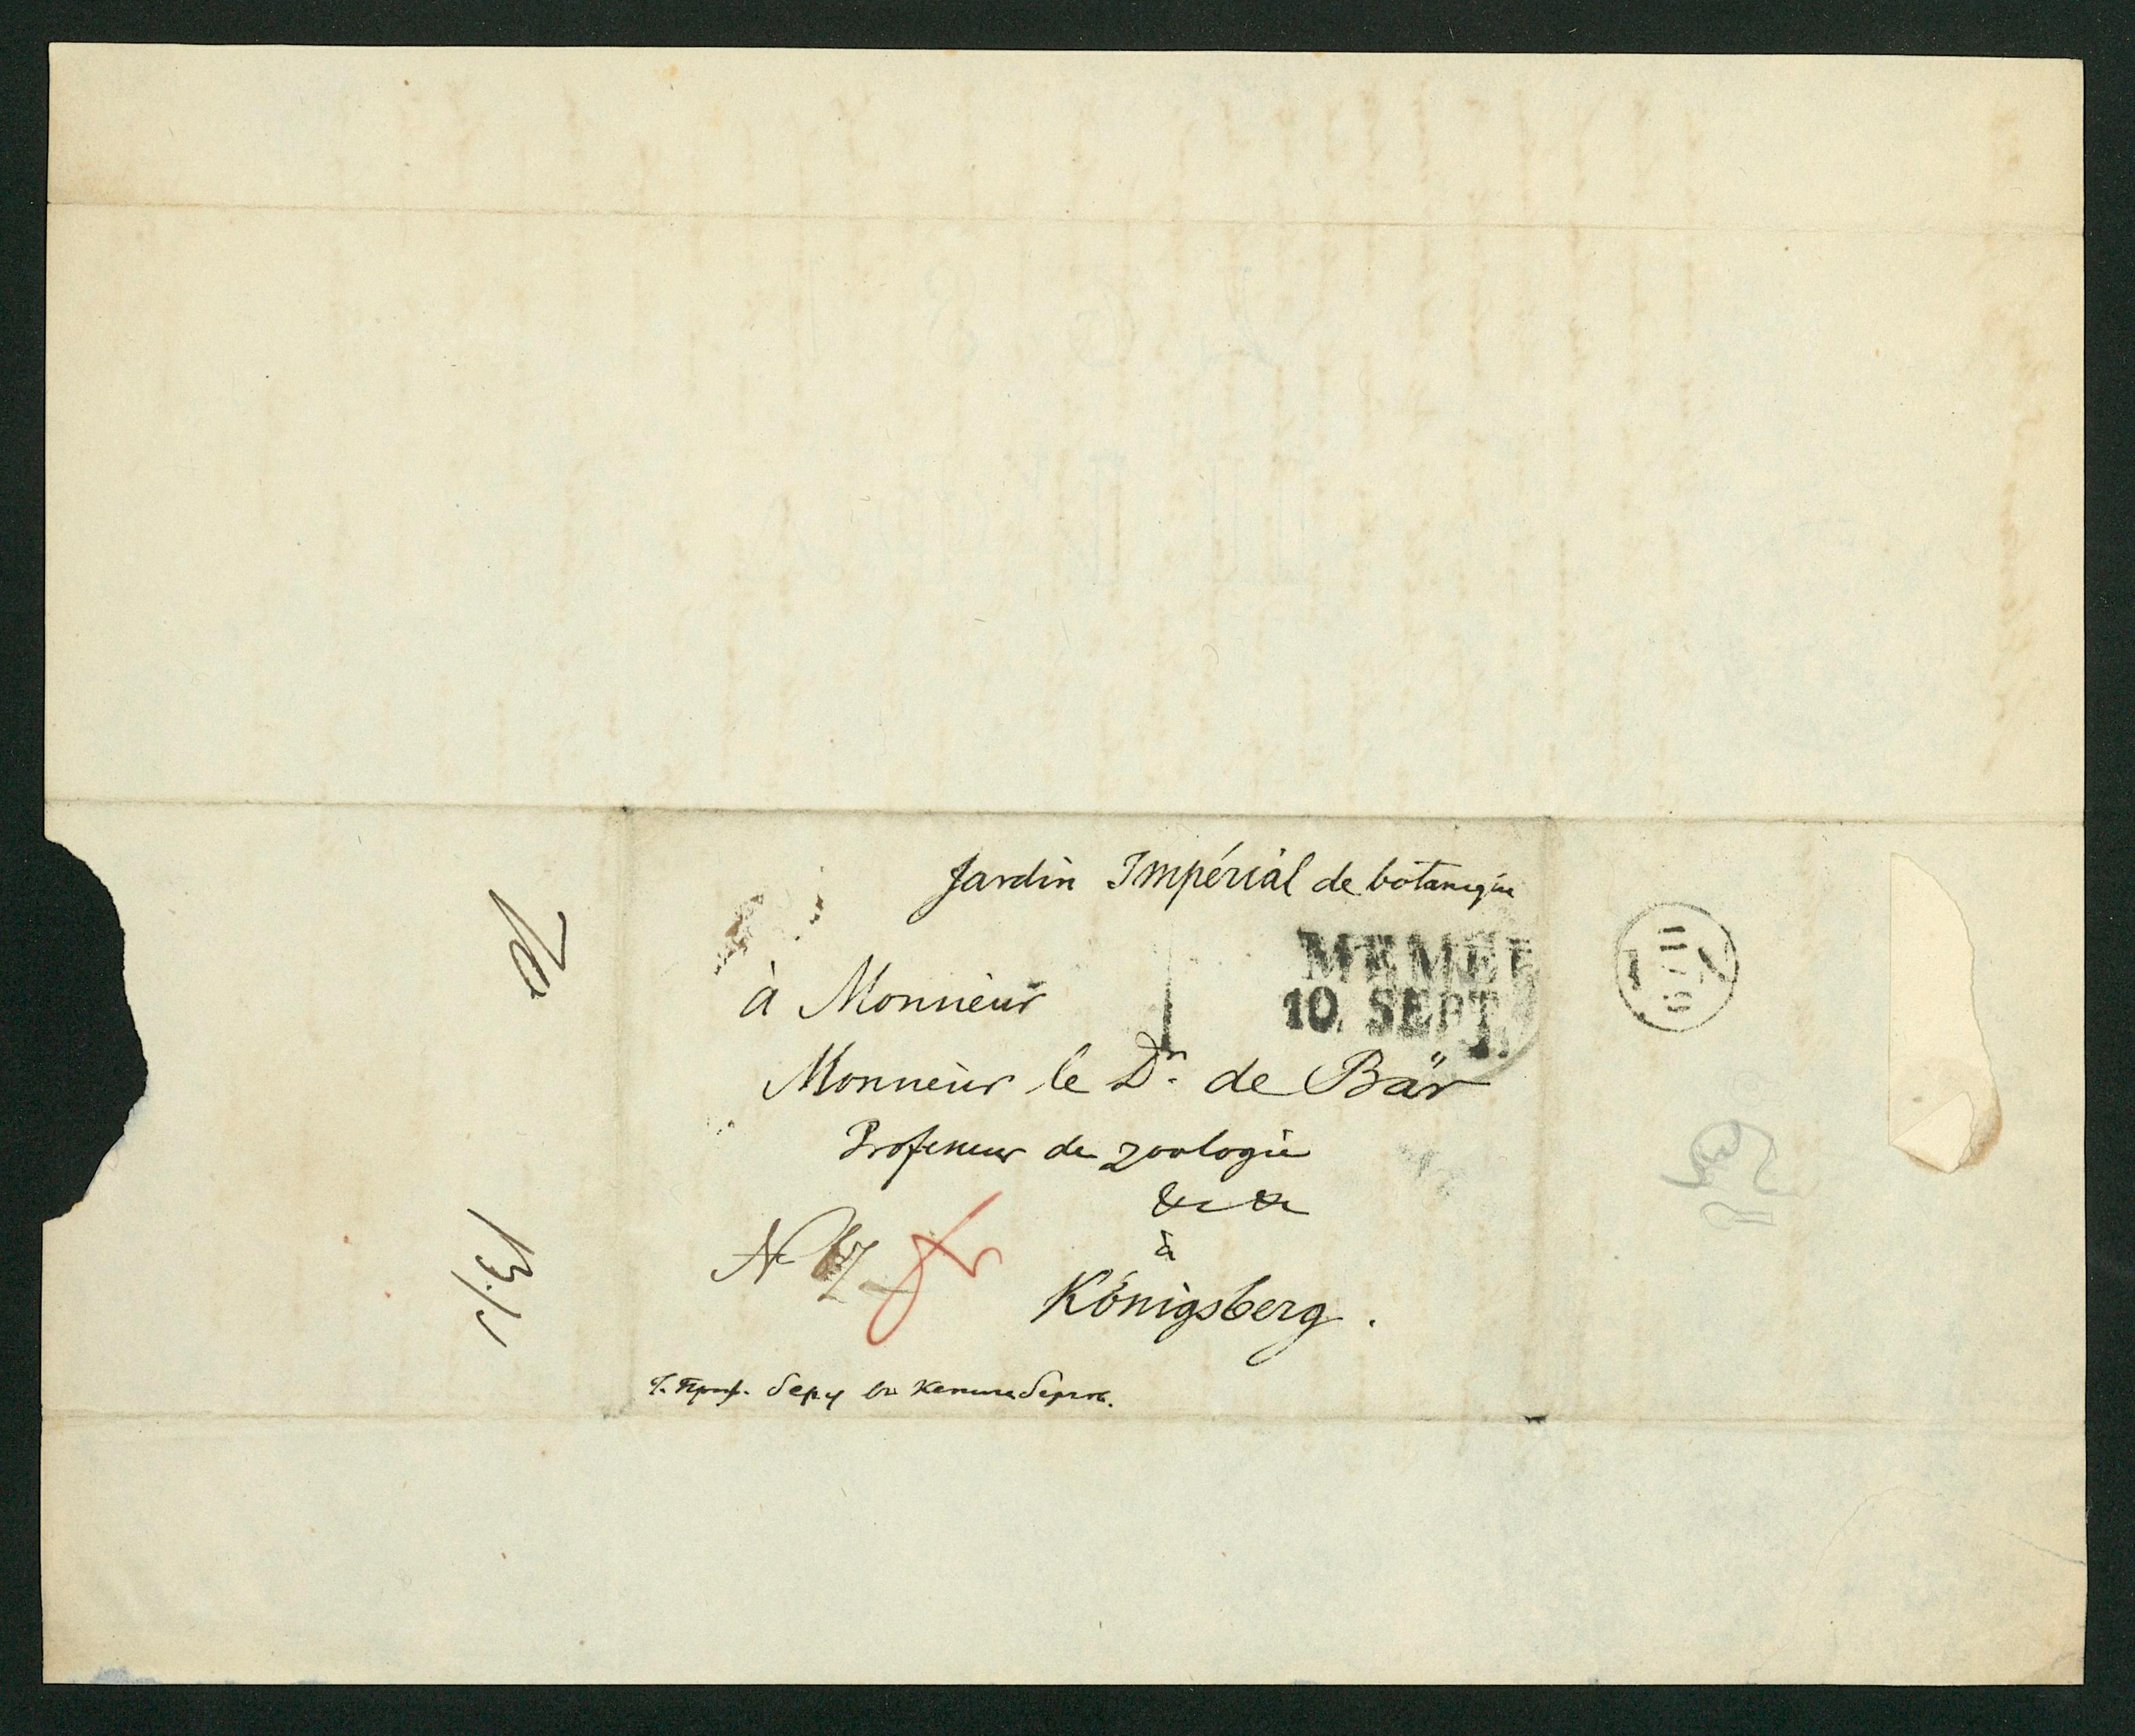 Jardin Impérial de botanique
MEMEL
10. SEPT
à Monsieur
Monsieur le Dr. de Bär
Professeur de zoologie
&c &c
à
Königsberg.
Г. Проф. Беру въ Кенигсбергѣ.
11/9